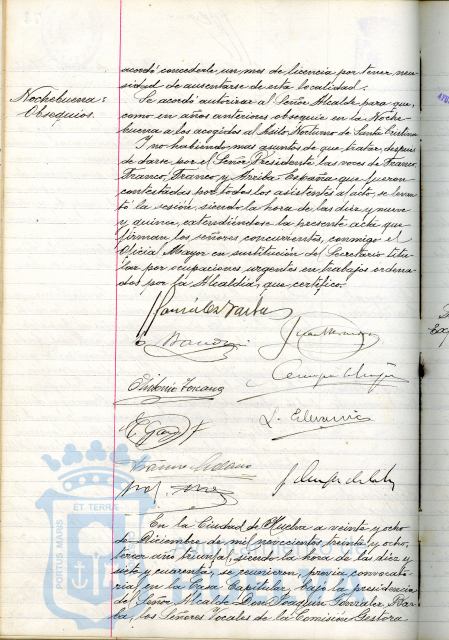 acordó concederle un mes de licencia por tener nece
sidad de ausentarse de esta localidad.
Nochebuena:
Obsequios.
Se acordó autorizar al Señor Alcalde para que,
como en años anteriores obsequie en la Noche-
buena a los acogidos al Asilo Nocturno de Santa Cristina
Y no habiendo mas asuntos de que tratar, después
de darse por el Señor Presidente las voces de Franco,
Franco, Franco y Arriba España que fueron
contestadas por todos los asistentes al acto, se levan
tó la sesión, siendo la hora de las diez y nueve
y quince, extendiéndose la presente acta que
firman los señores concurrentes, conmigo el
Oficial Mayor en sustitución del Secretario titu
lar por ocupaciones urgentes en trabajos ordena
dos por la Alcaldía, que certifico.
González Barba
Antonio
En la Ciudad de Huelva a veinte y ocho
de Diciembre de mil novecientos treinta y ocho,
tercer año triunfal, siendo la hora de las diez y
siete y cuarenta, se reunieron previa convocato
ria, en la Casa Capitular, bajo la presidencia
del Señor Alcalde Don Joaquín González Bar
ba, los Señores Vocales de la Comisión Gestora
PORTUS MARIS ET TERRAE